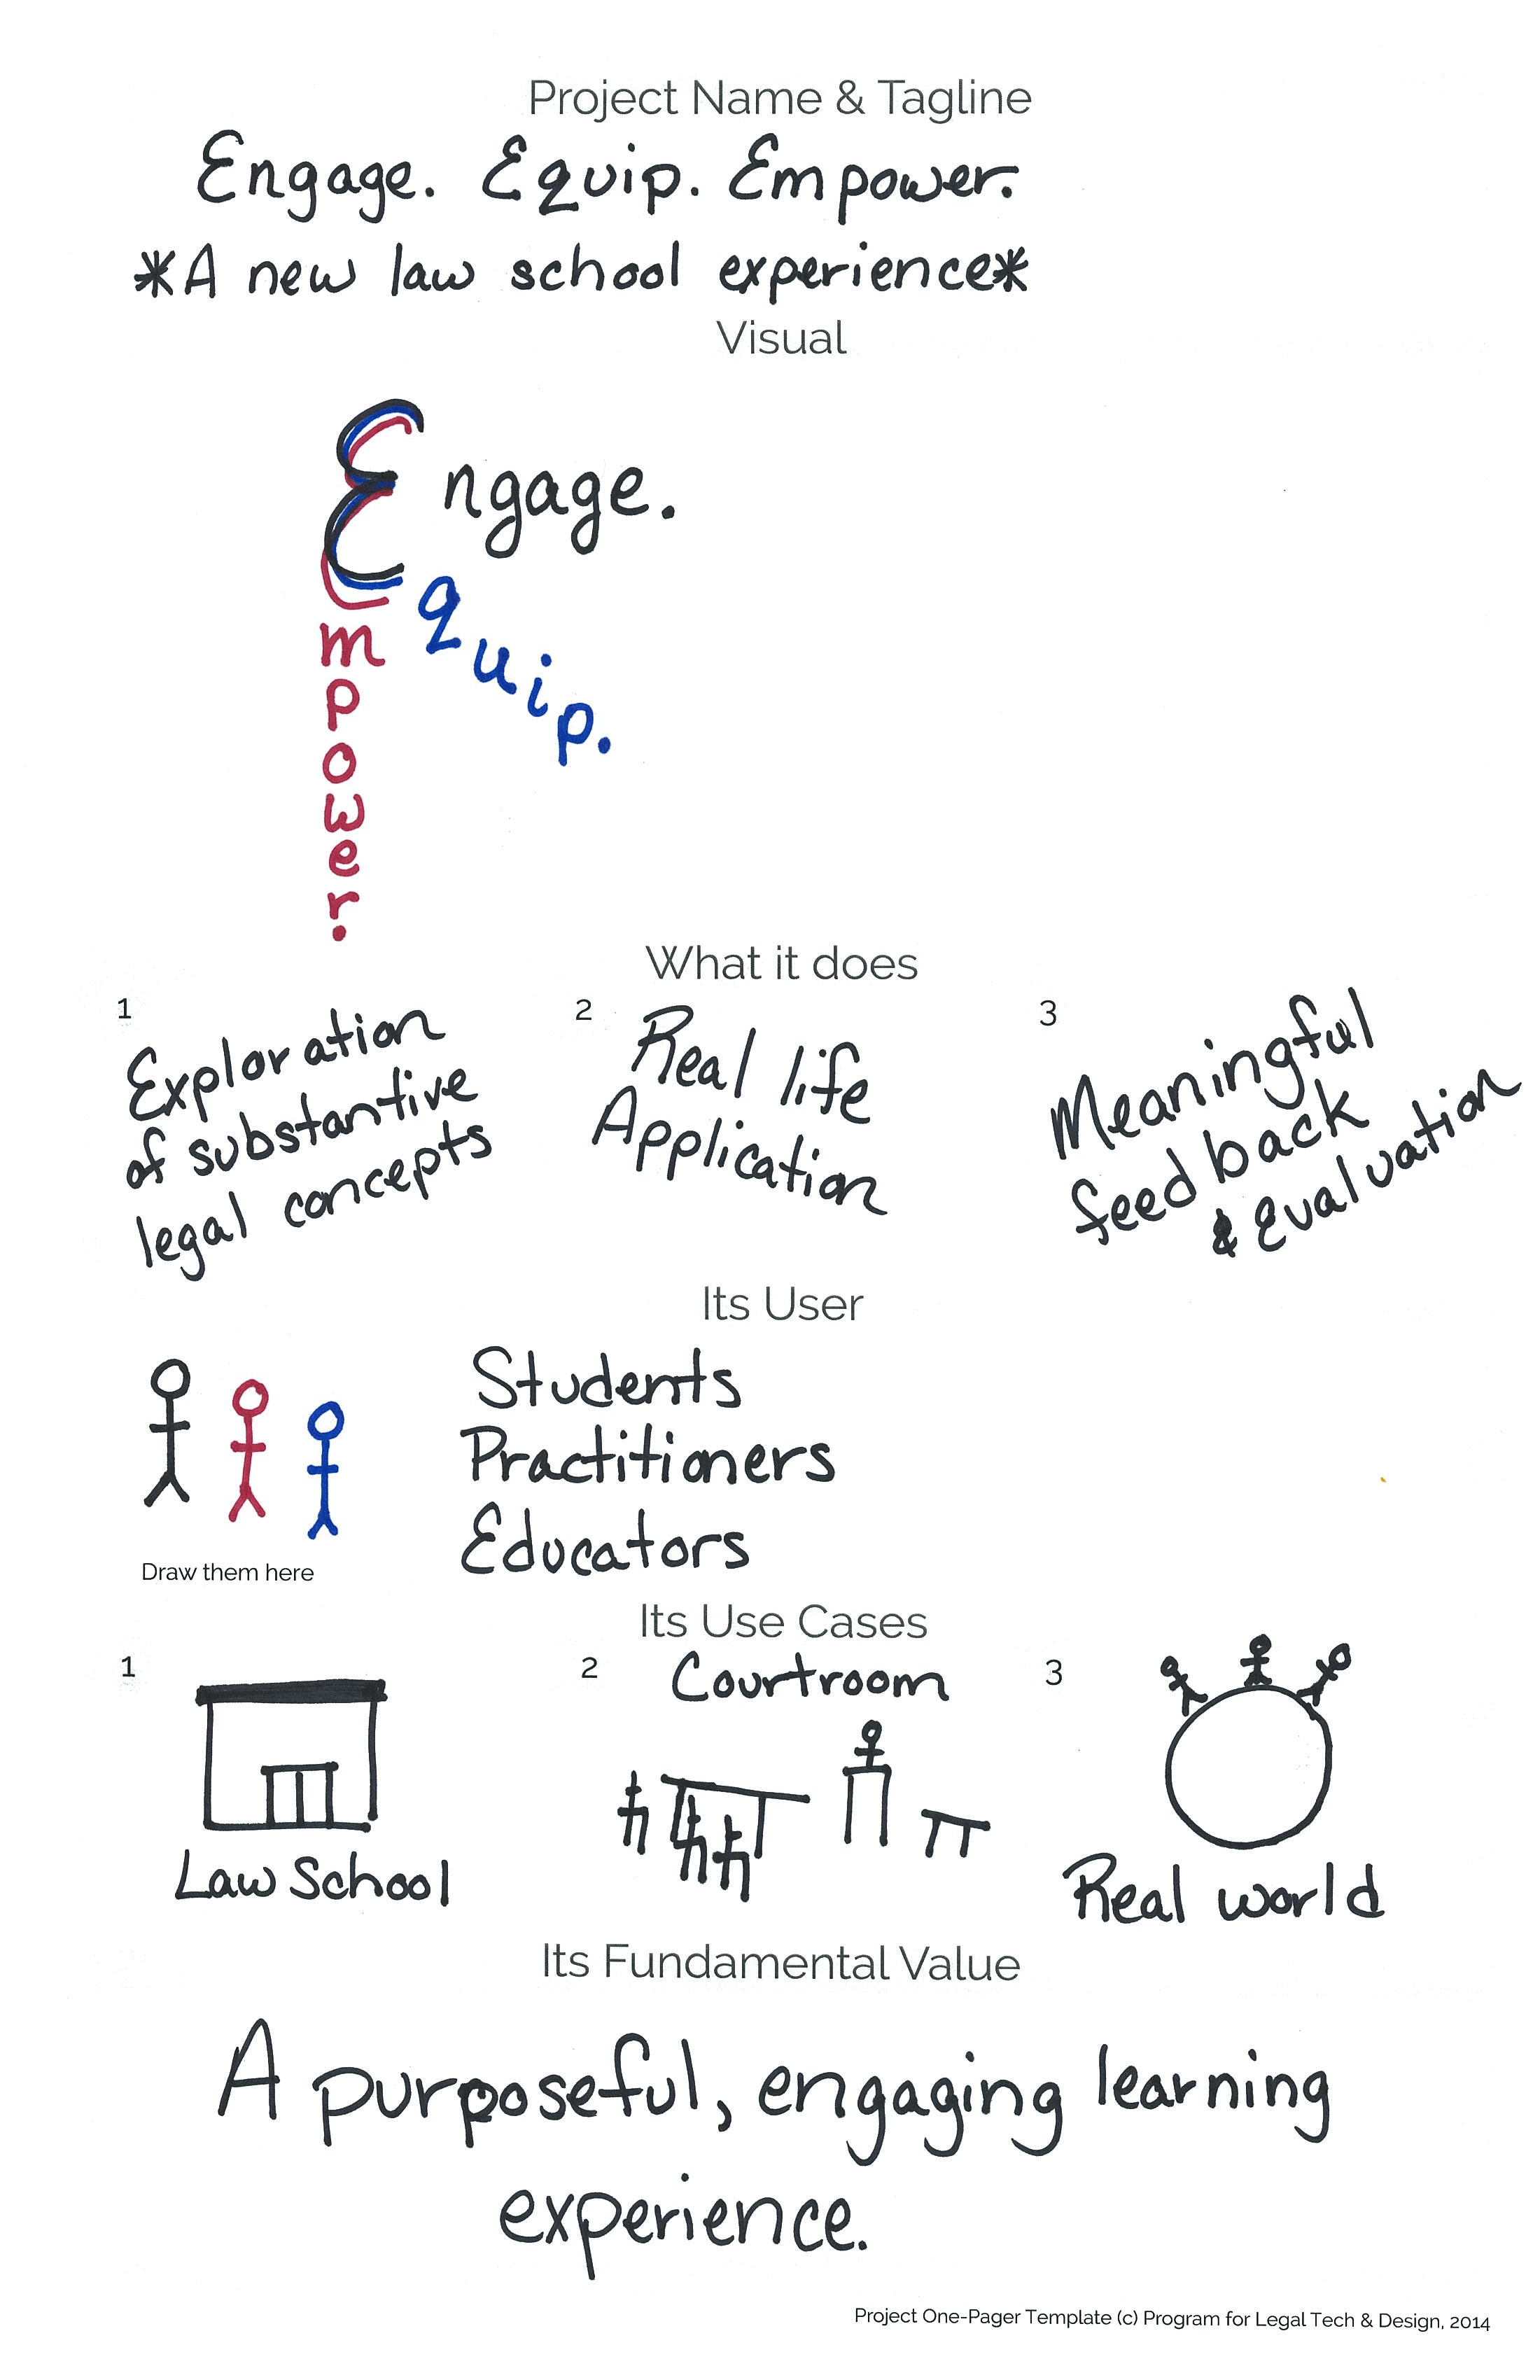 Project Name & Tagline
Engage. Equip. Empower.
*A new law school experience*
Visual
Engage.
Equip.
Empower.
What it does
1
Exploration
of substantive
legal concepts
2
Real life
Application
3
Meaningful
feedback
& Evaluation
Its User
Students
Practitioners
Educators
Draw them here
Its Use Cases
1
Law School
2
Courtroom
3
Real world
Its Fundamental Value
A purposeful, engaging learning
experience.
Project One-Pager Template (c) Program for Legal Tech & Design, 2014